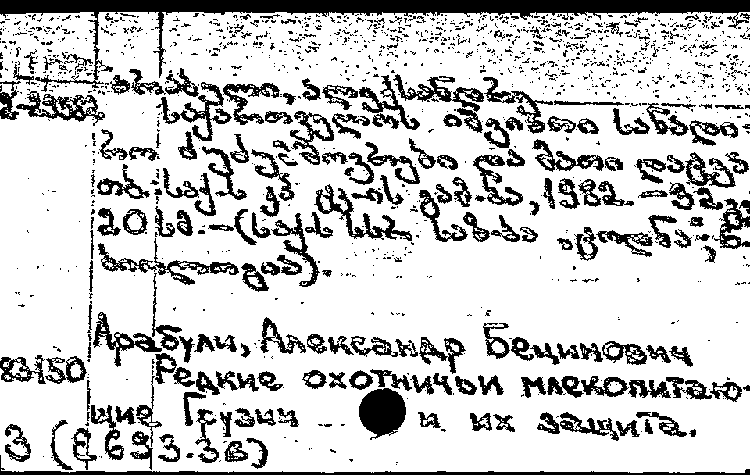 არაბული, ალექსანდრე
საქართველოს იშვიათი სანადი-
რო ძუძუმწოვრები და მათი დაცვა
თბ.: საქ-ს კპ ცკ-ის გამ-ბა, 1982. – 32
20 სმ. – (საქ-ს სსრ საზ-ბა „ცოდნა“;
ბიოლოგია).
Арабули, Александр Бецинович
83150 Редкие охотничьи млекопитаю-
щие Грузии и их защита.
3 (2693.3в)